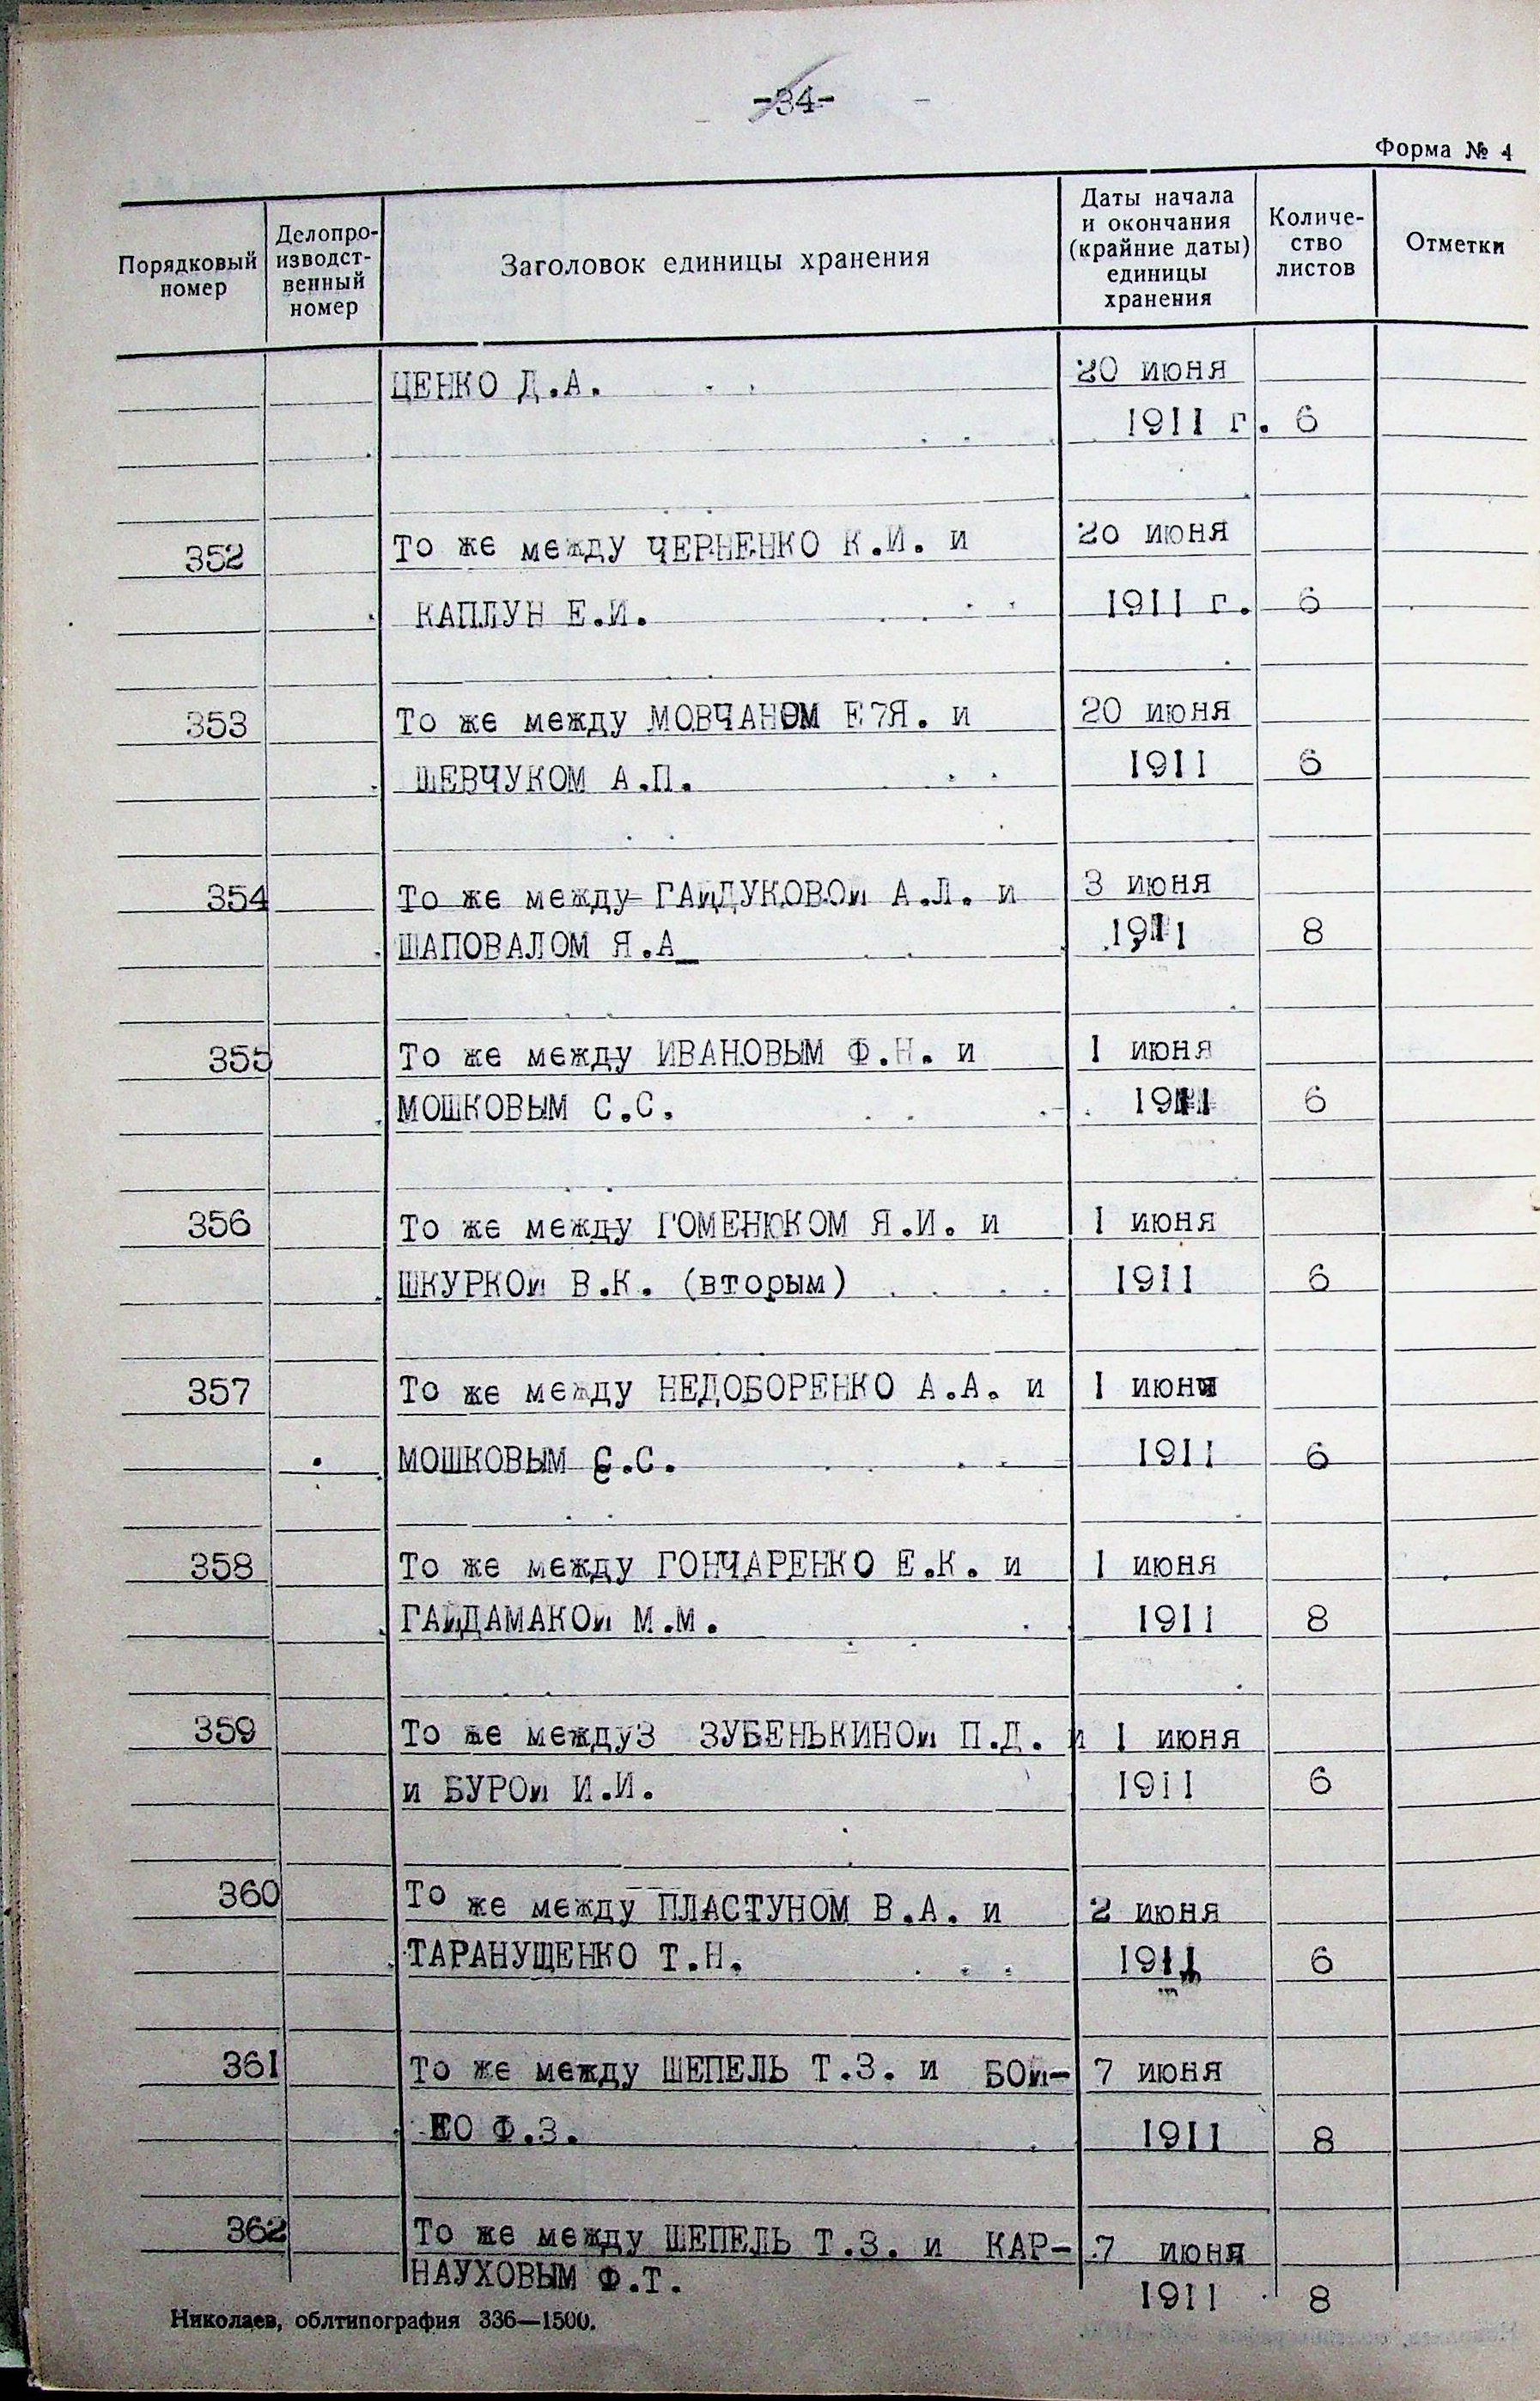 -34-
Форма № 4
Порядковый номер
Делопро-
изводст-
венный
номер
Заголовок единицы хранения
Даты начала
и окончания
(крайние даты)
единицы
хранения
Количе-
ство
листов
Отметки
ЦЕНКО Д.А. 20 июня
1911 г. 6
352 То же между ЧЕРНЕНКО К.И. и 20 июня
КАПЛУН Е.И. 1911 г. 6
353 То же между МОВЧАНОМ Е7Я. и 20 июня
ШЕВЧУКОМ А.П. 1911 6
354 То же между ГАйДУКОВОй А.Л. и 3 июня
ШАПОВАЛОМ Я.А_ 1911 8
355 То же между ИВАНОВЫМ Ф.Н. и 1 июня
МОШКОВЫМ С.С. 1911 6
356 То же между ГОМЕНЮКОМ Я.И. и 1 июня
ШКУРКОй В.К. (вторым) 1911 6
357 То же между НЕДОБОРЕНКО А.А. и 1 июня
МОШКОВЫМ С.С. 1911 6
358 То же между ГОНЧАРЕНКО Е.К. и 1 июня
ГАйДАМАКОй М.М. 1911 8
359 То же междуЗ ЗУБЕНЬКИНОй П.Д. и 1 июня
и БУРОй И.И. 1911 6
360 То же между ПЛАСТУНОМ В.А. и 2 июня
ТАРАНУЩЕНКО Т.Н. 1911 6
361 То же между ШЕПЕЛЬ Т.З. и БОй- 7 июня
КО Ф.З. 1911 8
362 То же между ШЕПЕЛЬ Т.З. и КАР- 7 июня
НАУХОВЫМ Ф.Т. 1911 8
Николаев, облтипография 336—1500.